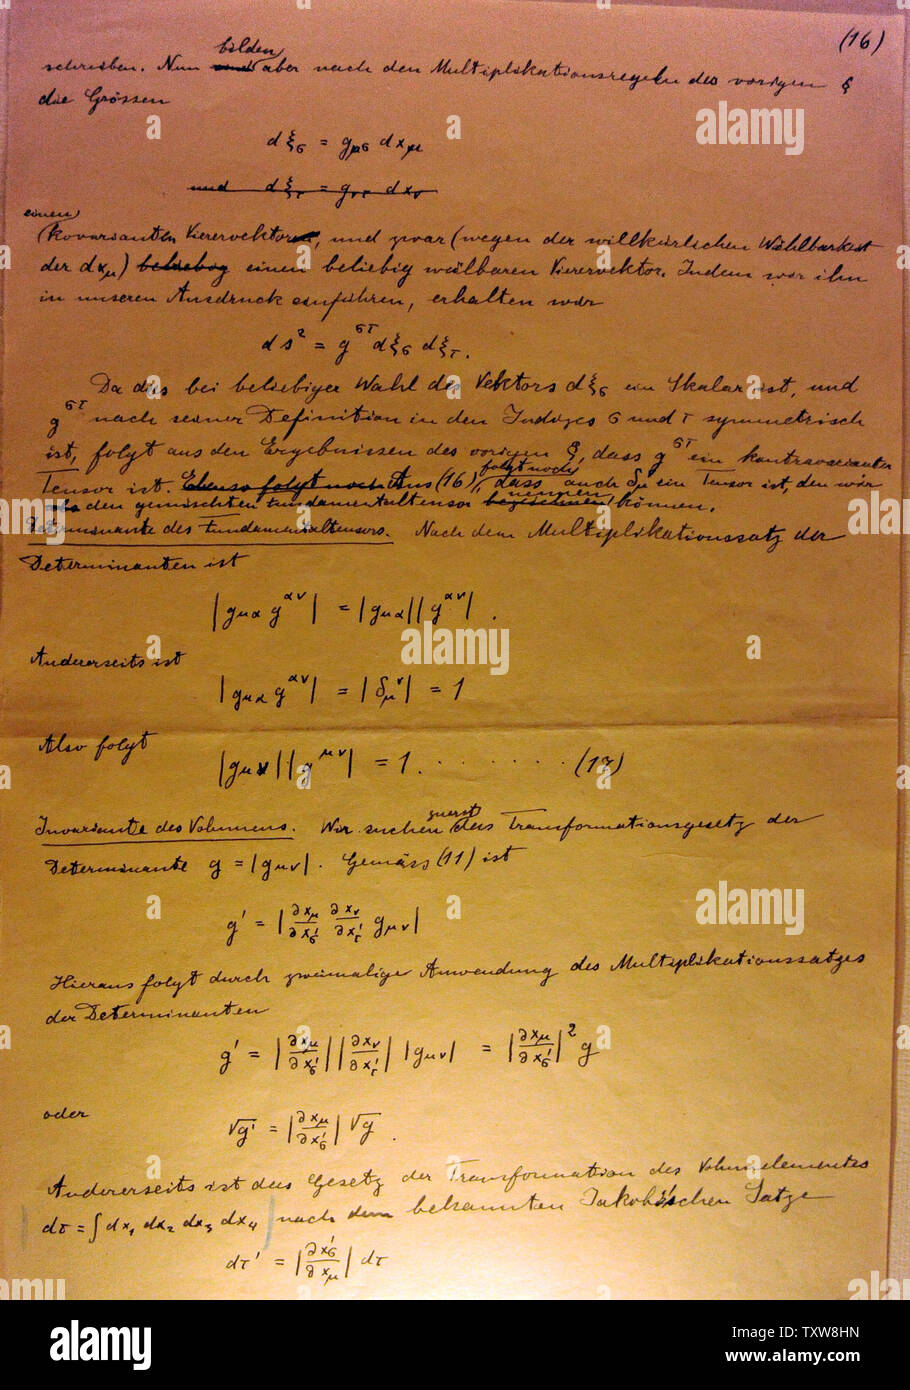 (16)
bilden
schreiben. Nun sind aber nach den Multiplikationsregeln des vorigen §
die Grössen
dξ_σ = g_μσ dx_μ
und dξ_τ = g_ντ dx_ν
einen
kovarianten Vierervektoren, und zwar (wegen der willkürlichen Wählbarkeit
der dx_μ) beliebig einen beliebig wälbaren Vierervektor. Indem wir ihn
in unseren Ausdruck einführen, erhalten wir
ds² = g^στ dξ_σ dξ_τ.
Da dies bei beliebiger Wahl des Vektors dξ_σ ein Skalar ist, und
g^στ nach seiner Definition in den Indizes σ und τ symmetrisch
ist, folgt aus den Ergebnissen des vorigen §, dass g^στ ein kontravarianter
folgt noch
Tensor ist. Ebenso folgt noch Aus (16), dass auch δ_μ^ν ein Tensor ist, den wir
nennen
den gemischten Fundamentaltensor bezeichnen können.
Determinante des Fundamentaltensors. Nach dem Multiplikationssatz der
Determinanten ist
|g_μα g^αν| = |g_μα||g^αν|.
Andererseits ist
|g_μα g^αν| = |δ_μ^ν| = 1
Also folgt
|g_μν||g^μν| = 1 . . . . . . . . (17)
zuerst
Invariante des Volumens. Wir suchen das Transformationsgesetz der
Determinante g = |g_μν|. Gemäss (11) ist
g' = |∂x_μ/∂x'_σ ∂x_ν/∂x'_τ g_μν|
Hieraus folgt durch zweimalige Anwendung des Multiplikationssatzes
der Determinanten
g' = |∂x_μ/∂x'_σ||∂x_ν/∂x'_τ||g_μν| = |∂x_μ/∂x'_σ|² g
oder
√g' = |∂x_μ/∂x'_σ| √g.
Andererseits ist das Gesetz der Transformation des Volumelementes
dτ = ∫dx₁ dx₂ dx₃ dx₄ nach dem bekannten Jakobi'schen Satze
dτ' = |∂x'_σ/∂x_μ| dτ
a alamy
a
a alamy
a
a alamy
alamy
Image ID: TXW8HN
www.alamy.com